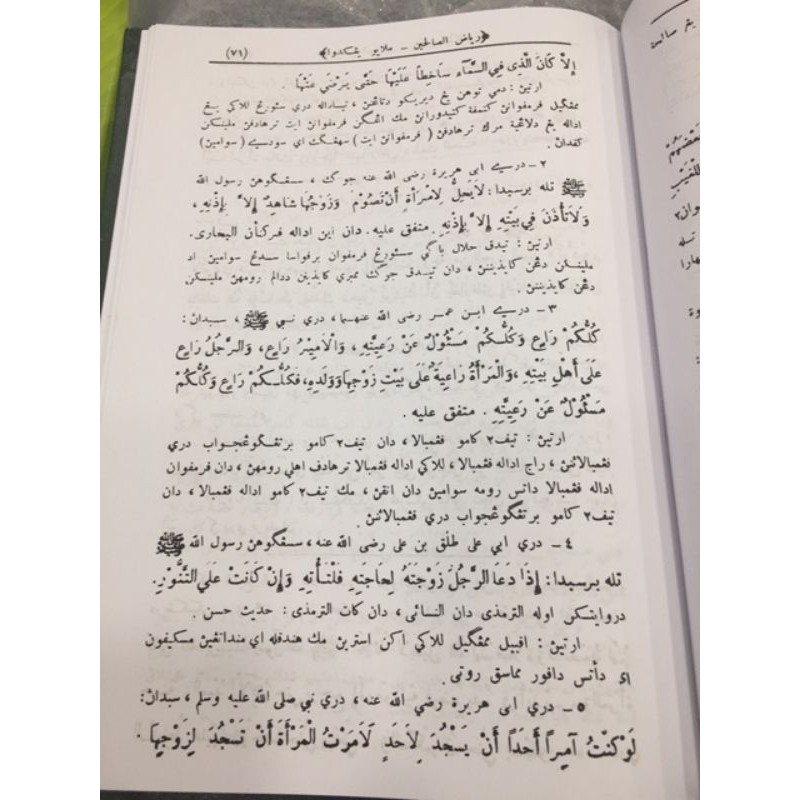 ﴿رياض الصالحين – ملايو يڠكدوا﴾ (٧١)
إِلاَّ كَانَ الَّذِى فِي السَّمَآءِ سَاخِطاً عَلَيْهَا حَتَّى يَرْضَى عَنْهَا .
ارتيڽ : دمي توهن يڠ ديريكو دتاڠنڽ ، تيساداله دري سئورڠ للاكي يڠ
ممڠݢيل ڤرمڤوانڽ كتمڤة كتيدورانڽ مك اڠݢن ڤرمڤوانڽ ايت ترهادڤڽ ملينكن
اداله يڠ دلاڠية مرك ترهادڤڽ ( ڤرمڤوانڽ ايت ) سهڠݢ اي سودسيي ( سوامينڽ )
كڤدانڽ .
٢ – دريي ابى هريرة رضى الله عنه جوݢ ، سسڠݢوهڽ رسول الله
ﷺ تله برسبدا : لاَيَحِلُّ لِامْرَأَةٍ أَنْ تَصُوْمَ وَزَوْجُهَا شَاهِدٌ إِلاَّ بِإِذْنِهِ ،
وَلاَتَأْذَنَ فِي بَيْتِهِ إِلاَّ بِإِذْنِهِ . متفق عليه . دان اين اداله ڤركتأن البخارى .
ارتيڽ : تيدق حلال باݢي سئورڠ ڤرمڤوان برڤواسا سدڠ سوامينڽ اد
ملينكن دڠن كايذيننڽ ، دان تيدق جوݢ ممبري كايذينن ددالم رومهڽ ملينكن
دڠن كايذيننڽ .
٣ – دريي ابن عمر رضى الله عنهما ، دري نبي ﷺ ، سبدان :
كُلُّكُمْ رَاعٍ وَكُلُّكُمْ مَسْئُوْلٌ عَنْ رَعِيَّتِهِ ، وَالْاَمِيْرُ رَاعٍ ، وَالرَّجُلُ رَاعٍ
عَلَى أَهْلِ بَيْتِهِ ، وَالْمَرْأَةُ رَاعِيَةٌ عَلَى بَيْتِ زَوْجِهَا وَوَلَدِهِ ، فَكُلُّكُمْ رَاعٍ وَكُلُّكُمْ
مَسْئُوْلٌ عَنْ رَعِيَّتِهِ . متفق عليه .
ارتيڽ : تيڤ٢ كامو ڤڠمبالا ، دان تيڤ٢ كامو برتڠݢوڠجواب دري
ڤڠمبالائنڽ ، راج اداله ڤڠمبالا ، للاكي اداله ڤڠمبالا ترهادڤ اهلي رومهڽ ، دان ڤرمڤوان
اداله ڤڠمبالا داتس رومه سوامينڽ دان انقڽ ، مك تيڤ٢ كامو اداله ڤڠمبالا ، دان
تيڤ٢ كامو برتڠݢوڠجواب دري ڤڠمبالائنڽ .
٤ – دري ابي على طلق بن على رضى الله عنه ، سسڠݢوهڽ رسول الله ﷺ
تله برسبدا : إِذَا دَعَا الرَّجُلُ زَوْجَتَهُ لِحَاجَتِهِ فَلْتَأْتِهِ وَإِنْ كَانَتْ عَلَى التَّنُّوْرِ .
دروايتكن اوله الترمذى دان النسائى ، دان كات الترمذى : حديث حسن .
ارتيڽ : اڤبيل ممڠݢيل للاكي اكن استرينڽ مك هندقله اي مندانڠيڽ مسكيڤون
اي دأتس داڤور مماسق روتى .
٥ – دري ابى هريرة رضي الله عنه ، دري نبي صلى الله عليه وسلم ، سبدان :
لَوْ كُنْتُ آمِراً أَحَداً أَنْ يَسْجُدَ لِأَحَدٍ لَأَمَرْتُ الْمَرْأَةَ أَنْ تَسْجُدَ لِزَوْجِهَا .